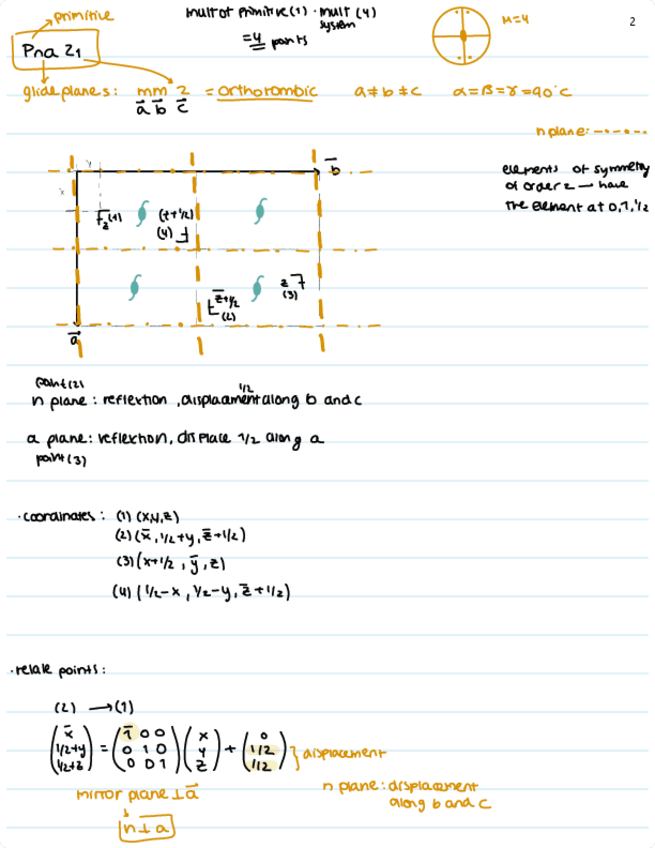 primitive
mult of primitive (1) · mult (4)
system
= 4 points
M=4
2
Pna 2₁
glide planes: mm 2 = orthorombic a ≠ b ≠ c α = β = γ = 90°C
a⃗ b⃗ c⃗
n plane: -·-·-·
elements of symmetry
of order 2 → have
the element at 0, 1, 1/2
b⃗
y
x
z (1)
(z+1/2)
(4)
z
(3)
z̅+1/2
(2)
a⃗
point (2)
n plane: reflextion, displaament 1/2 along b and c
a plane: reflextion, displace 1/2 along a
point (3)
· coordinates: (1) (x,y,z)
(2) (x̅, 1/2+y, z̅+1/2)
(3) (x+1/2, y̅, z)
(4) (1/2-x, 1/2-y, z̅+1/2)
· relate points:
(2) → (1)
(x̅ 1/2+y 1/2+z) = (1̅ 0 0 0 1 0 0 0 1) (x y z) + (0 1/2 1/2) } displacement
mirror plane ⊥ a⃗
n plane: displacement
along b and c
n ⊥ a